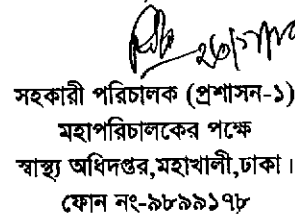 সহকারী পরিচালক (প্রশাসন-১)
মহাপরিচালকের পক্ষে
স্বাস্থ্য অধিদপ্তর,মহাখালী,ঢাকা।
ফোন নং-৯৮৯৯১৭৮